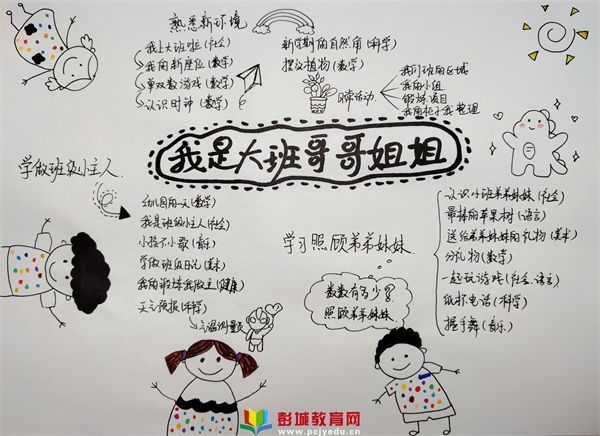 熟悉新环境
我上大班啦(社会)
我的新座位(数学)
单双数游戏(数学)
认识时钟(数学)
新学期的自然角(科学)
摆设植物(数学)
日常活动
我们班的区域
我的小组
锻炼项目
我的柜子我整理
我是大班哥哥姐姐
学做班级小主人
幼儿园的一天(数学)
我是班级小主人(社会)
小孩不小歌(音乐)
学做班级日记(美术)
我的锻炼我做主(健康)
天气预报(科学)
气温测量
学习照顾弟弟妹妹
数数有多少
照顾弟弟妹妹
认识小班弟弟妹妹(社会)
最棒的苹果树(语言)
送给弟弟妹妹的礼物(美术)
分礼物(数学)
一起玩游戏(社会、语言)
纸杯电话(科学)
握手舞(音乐)
彭城教育网
www.pcjyedu.cn